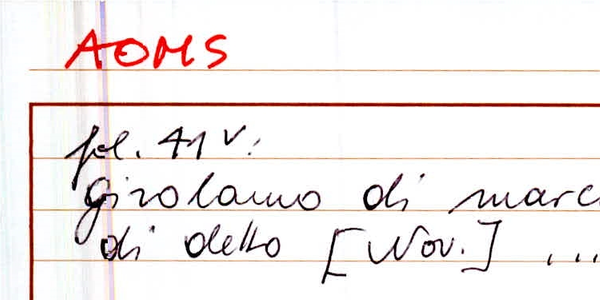 AOMS
fol. 41 v:
Girolamo di marc
di detto [Nov.] ...